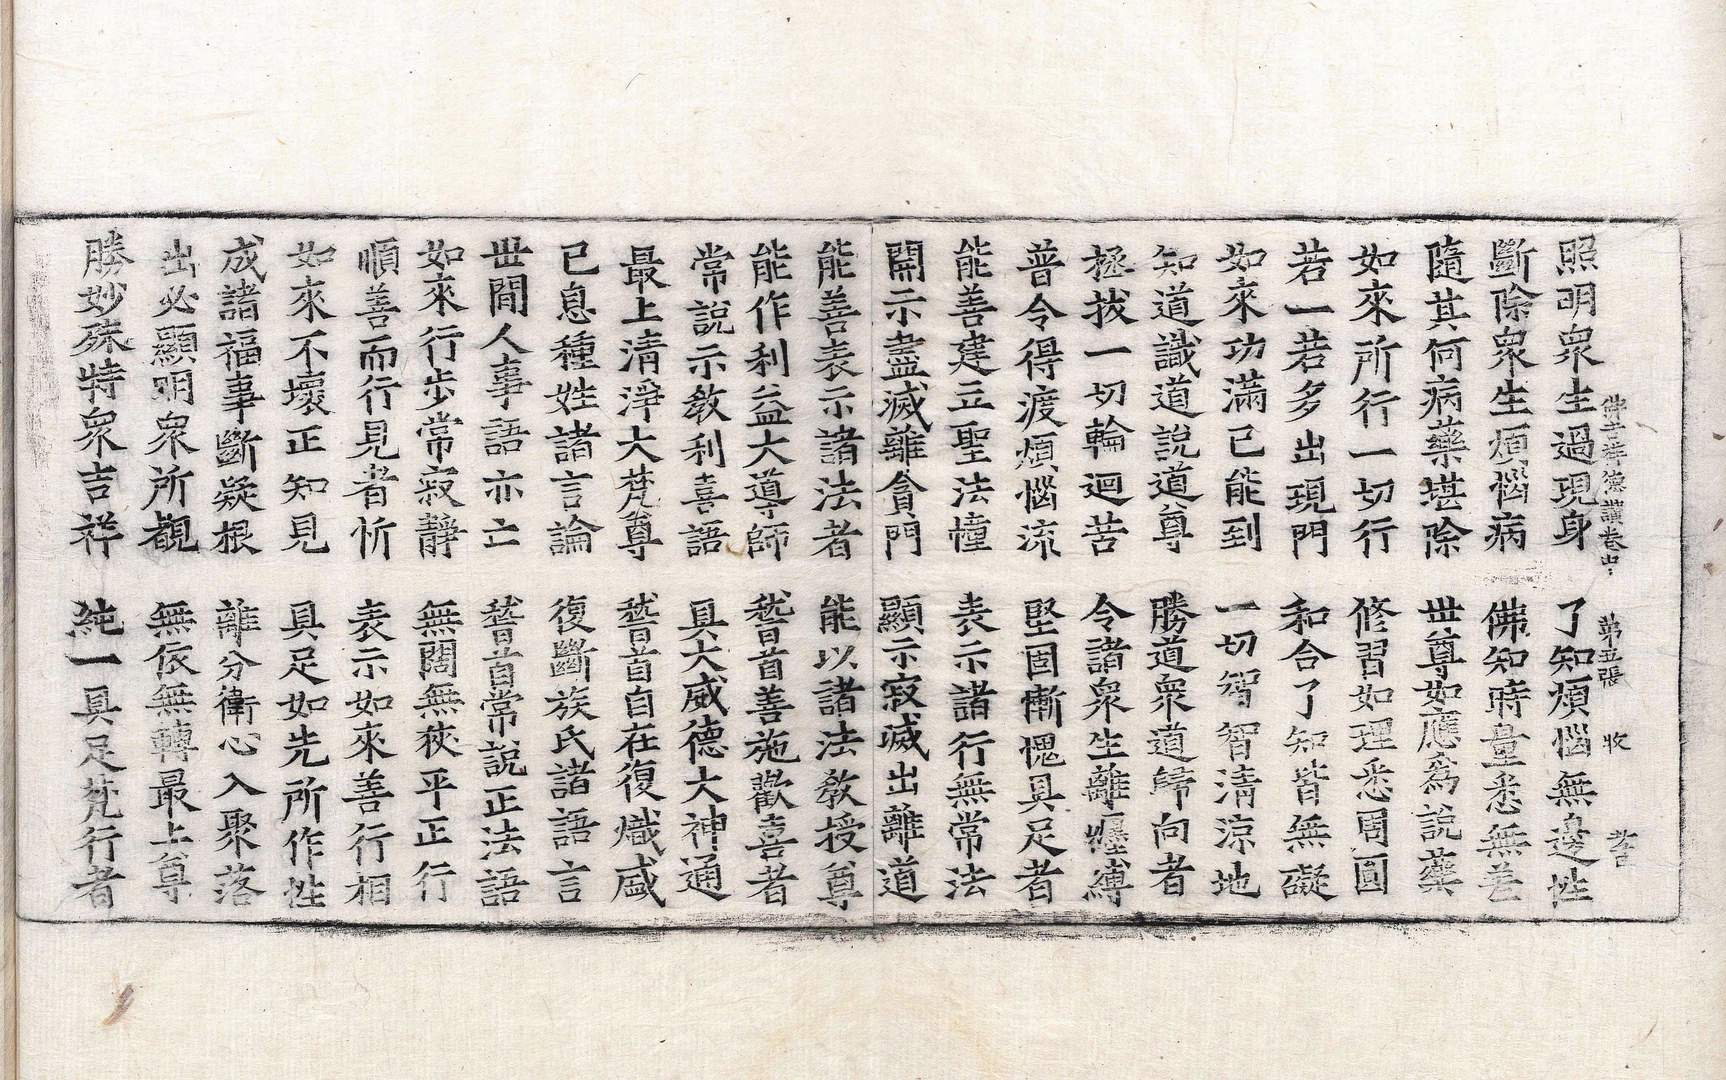 佛吉祥德讚卷中 第五張 牧
照明衆生過現身 了知煩惱無邊性
斷除衆生煩惱病 佛知時量悉無差
隨其何病藥堪除 世尊如應爲説藥
如來所行一切行 修習如理悉周圓
若一若多出現門 和合了知皆無礙
如來功滿已能到 一切智智清涼地
知道識道説道尊 勝道衆道歸向者
拯拔一切輪迴苦 令諸衆生離纏縛
普令得渡煩惱流 堅固慚愧具足者
能善建立聖法幢 表示諸行無常法
開示盡滅離貪門 顯示寂滅出離道
能善表示諸法者 能以諸法教授尊
能作利益大導師 稽首善施歡喜者
常説示教利喜語 具大威德大神通
最上清淨大梵尊 稽首自在復熾盛
已息種姓諸言論 復斷族氏諸語言
世間人事語亦亡 稽首常説正法語
如來行步常寂靜 無闊無狹平正行
順善而行見者忻 表示如來善行相
如來不壞正知見 具足如先所作性
成諸福事斷疑根 離分衛心入聚落
出必顯明衆所觀 無依無轉最上尊
勝妙殊特衆吉祥 純一具足梵行者